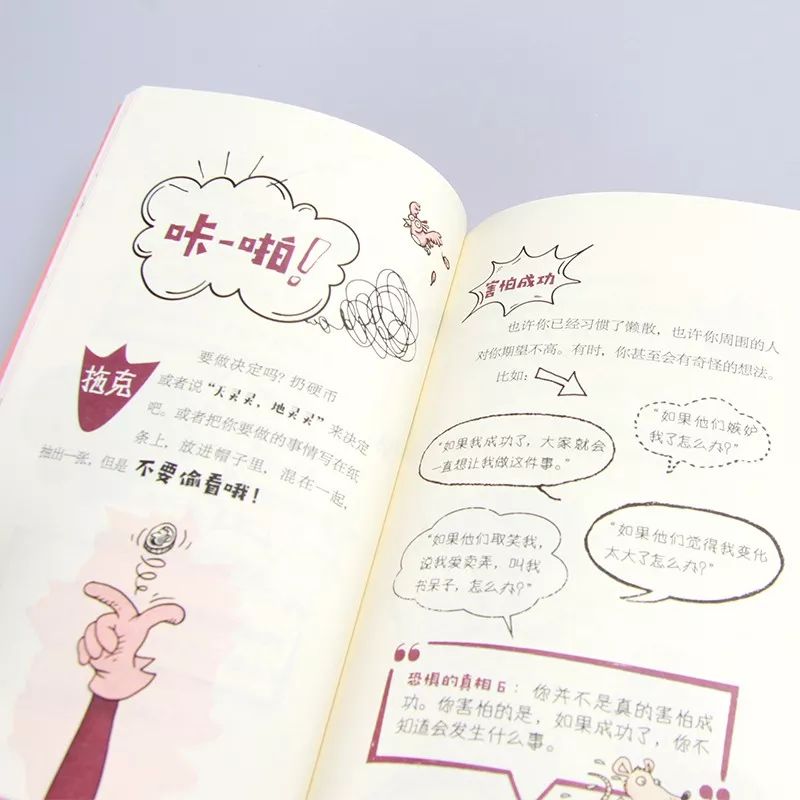 咔一啪！
拖克
要做决定吗？扔硬币
或者说“天灵灵，地灵灵”来决定
吧。或者把你要做的事情写在纸
条上，放进帽子里，混在一起，
抽出一张，但是 不要偷看哦！
害怕成功
也许你已经习惯了懒散，也许你周围的人
对你期望不高。有时，你甚至会有奇怪的想法。
比如：
“如果我成功了，大家就会
一直想让我做这件事。”
“如果他们嫉妒
我了怎么办？”
“如果他们取笑我，
说我爱卖弄，叫我
书呆子，怎么办？”
“如果他们觉得我变化
太大了怎么办？”
恐惧的真相6：你并不是真的害怕成
功。你害怕的是，如果成功了，你不
知道会发生什么事。